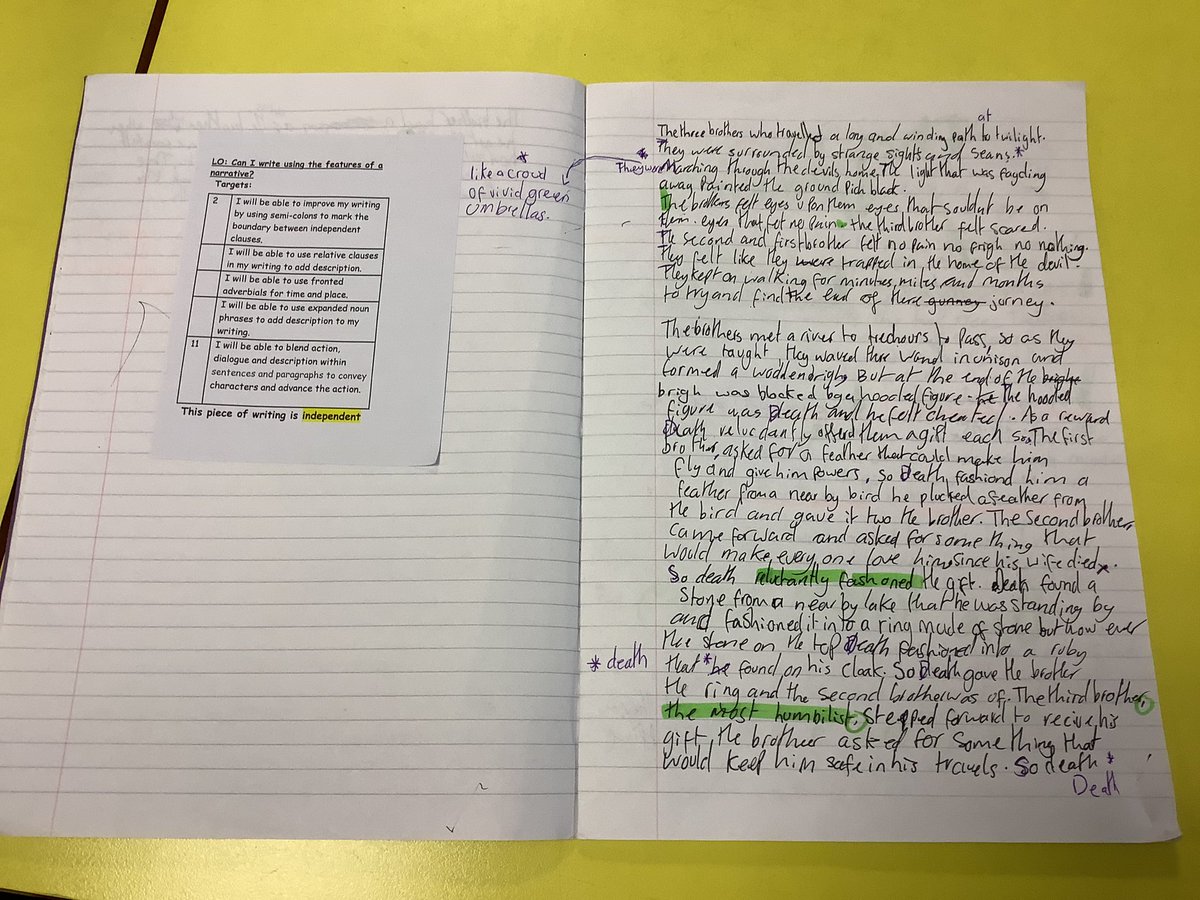 LO: Can I write using the features of a
narrative?
Targets:
2 I will be able to improve my writing
by using semi-colons to mark the
boundary between independent
clauses.
I will be able to use relative clauses
in my writing to add description.
I will be able to use fronted
adverbials for time and place.
I will be able to use expanded noun
phrases to add description to my
writing.
11 I will be able to blend action,
dialogue and description within
sentences and paragraphs to convey
characters and advance the action.
This piece of writing is independent
*
like a croud
of vivid green
umbrellas.
* death
at
The three brothers who travelled a long and winding path to twilight.
They were surrounded by strange sights and seans.*
* They were Marching through the devils home. The light that was fayding
away painted the ground pich black.
The brothers felt eyes upon them eyes that souldnt be on
them. eyes that felt no pain. the third brother felt scared.
The second and first brother felt no pain no frigh no nothing.
They felt like they were trapped in the home of the devil.
They kept on walking for minutes, miles and months
to try and find the end of there gurney jorney.
The brothers met a river to trechours to pass, so as they
were taught, they waved ther wand in unison and
formed a wodden brigh. But at the end of the brighe
brigh was blocked by a hooded figure - he the hooded
figure was Death and he felt cheated. As a reward
Death reluctantly offerd them a gift each so. The first
brother, asked for a feather that could make him
fly and give him powers, so Death fashiond him a
feather from a near by bird he plucked a feather from
the bird and gave it two the brother. The second brother,
came forward and asked for something that
would make every one love him since his wife died.
So death reluctantly fashioned the gift. death found a
stone from a near by lake that he was standing by
and fashioned it into a ring made of stone but how ever
the stone on the top Death fashioned into a ruby
that * he found on his cloak. So Death gave the brother
the ring and the second brother was of. The third brother,
the most humbilist, stepped forward to recive his
gift, the brother asked for something that
would keep him safe in his travels. So death *
Death